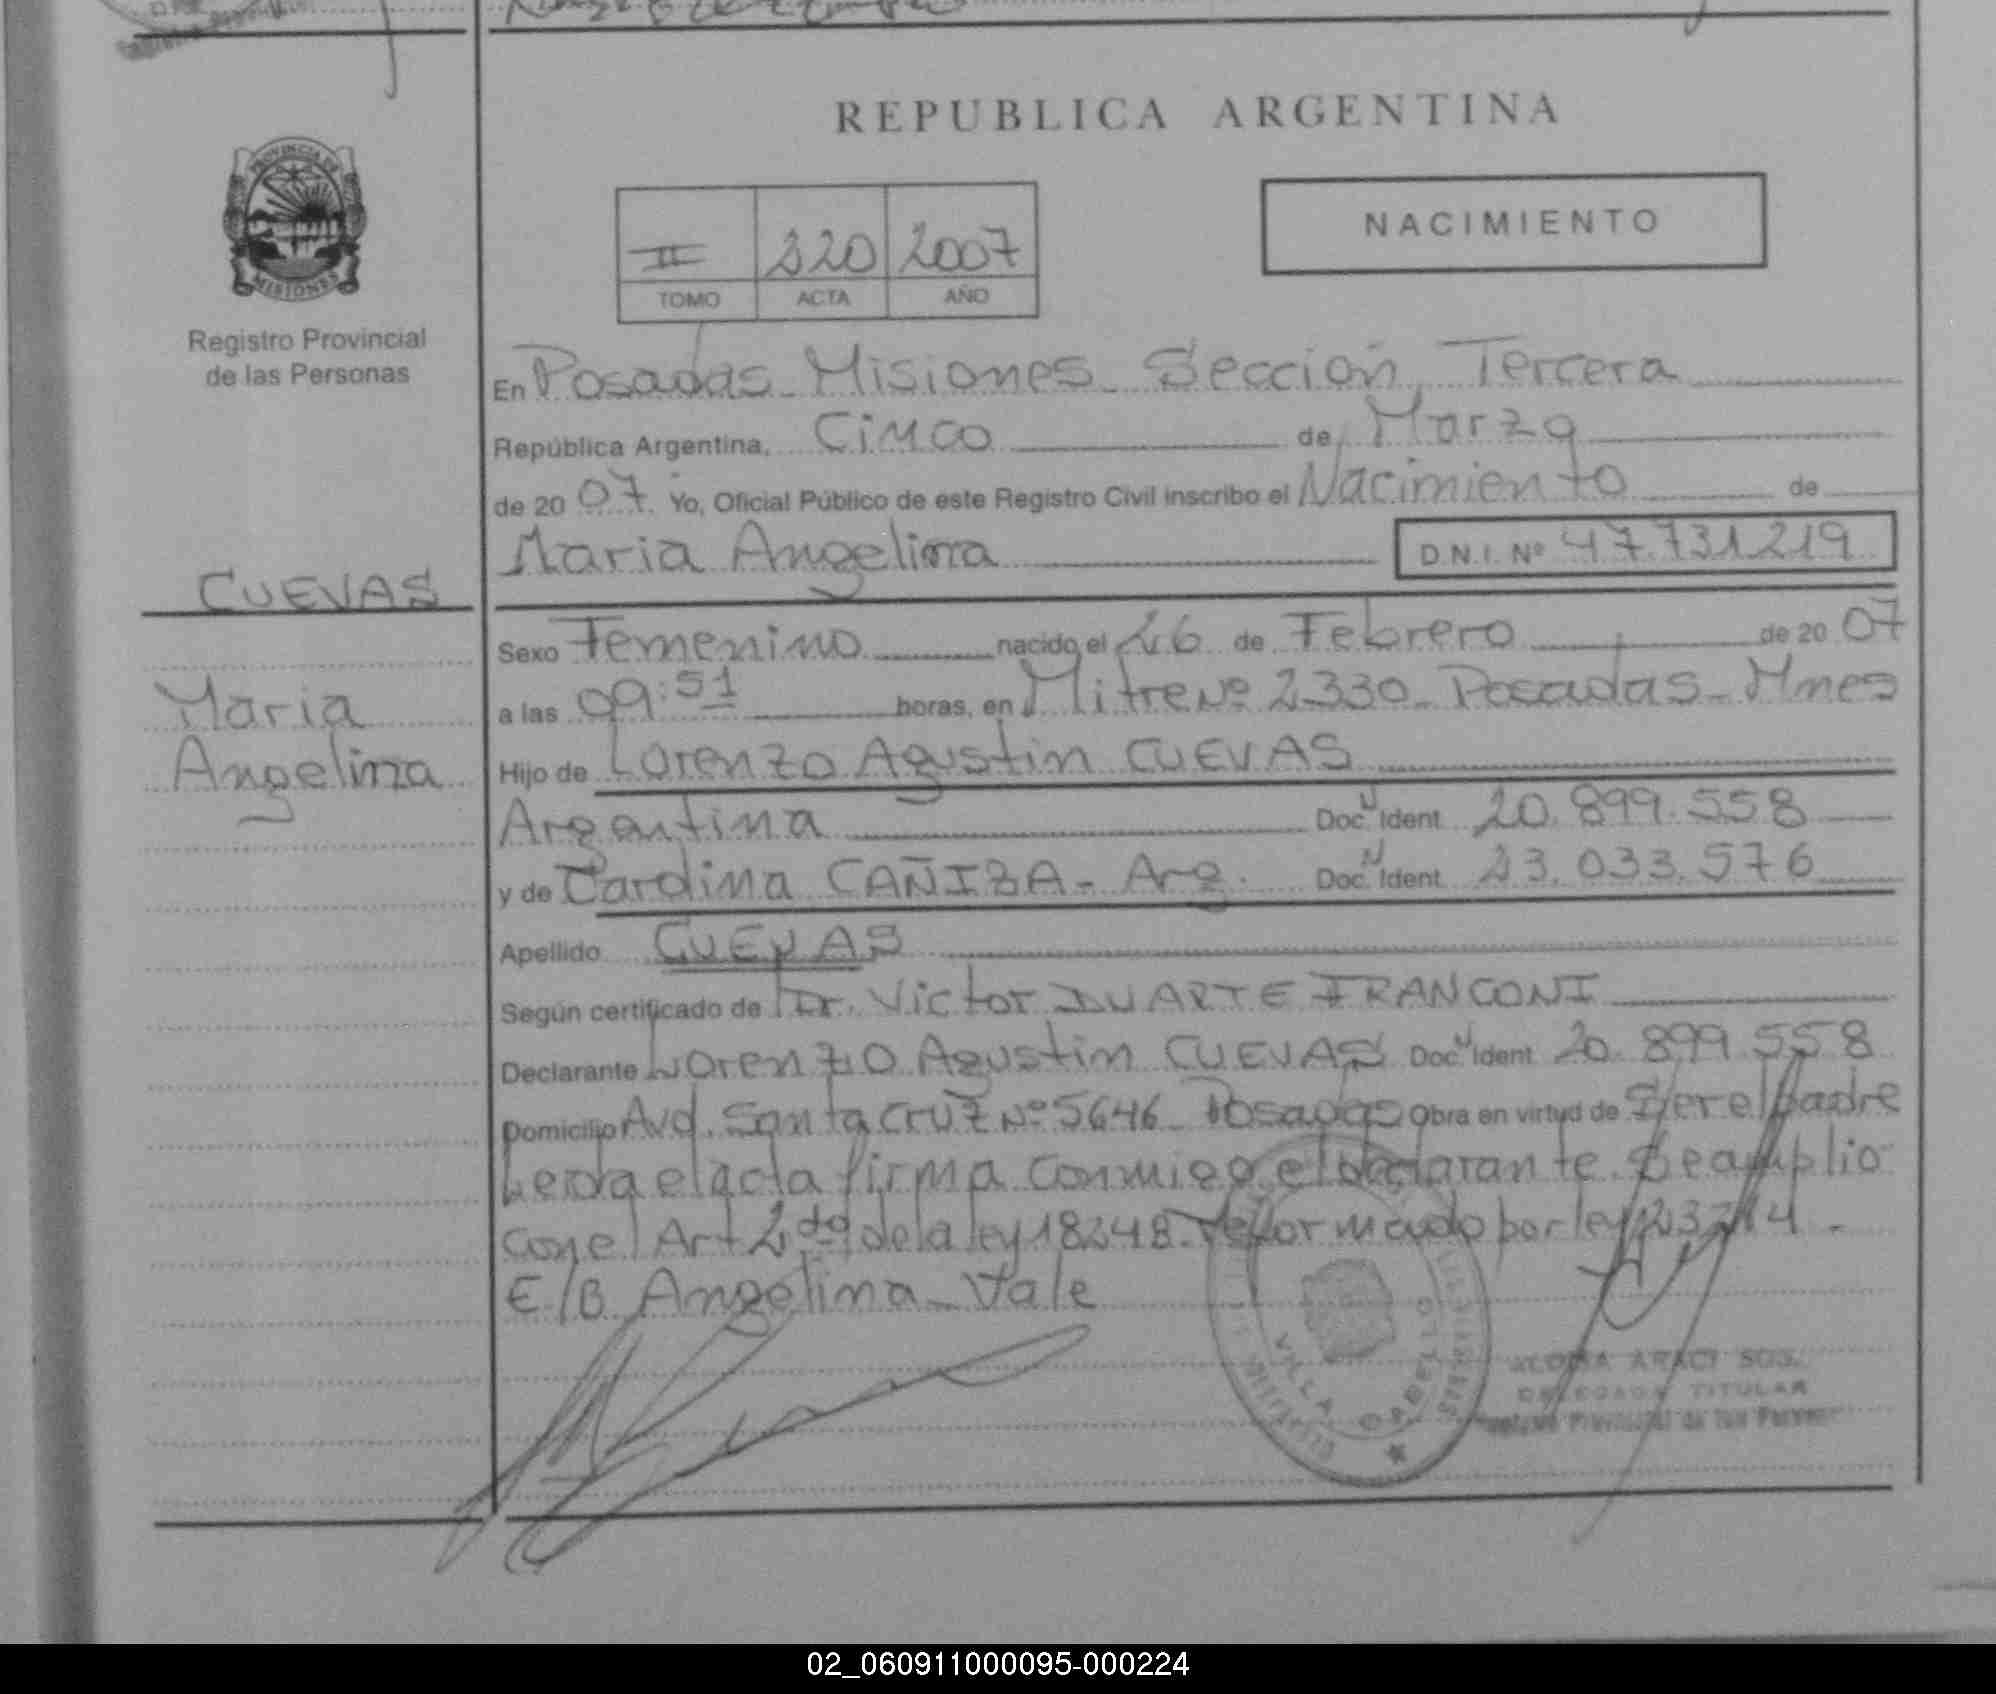 REPUBLICA ARGENTINA
PROVINCIA DE
MISIONES
Registro Provincial
de las Personas
NACIMIENTO
II 220 2007
TOMO ACTA AÑO
En Posadas Misiones Sección Tercera
República Argentina, Cinco de Marzo
de 2007 Yo, Oficial Público de este Registro Civil inscribo el Nacimiento de
Maria Angelina D.N.I. Nº 47.731.219
CUEVAS
Maria
Angelina
Sexo Femenino nacido el 26 de Febrero de 2007
a las 09:51 horas, en Mitre Nº 2330 Posadas - Mnes
Hijo de Lorenzo Agustin CUEVAS
Argentina Doc. Ident. 20.899.558
y de Cardina CAÑIZA - Arg. Doc. Ident. 23.033.576
Apellido CUEVAS
Según certificado de Dr. Victor DUARTE FRANCONI
Declarante Lorenzo Agustin CUEVAS Doc. Ident. 20.899.558
Domicilio Avd. Santa Cruz Nº 5646 - Posadas Obra en virtud de Ser el padre
Leida el acta firma conmigo el declarante. Se amplio
con el Art 2do de la ley 18248 reformado por ley
E/B Angelina - Vale
VILLA CABELLO
DELEGADA TITULAR
02_060911000095-000224